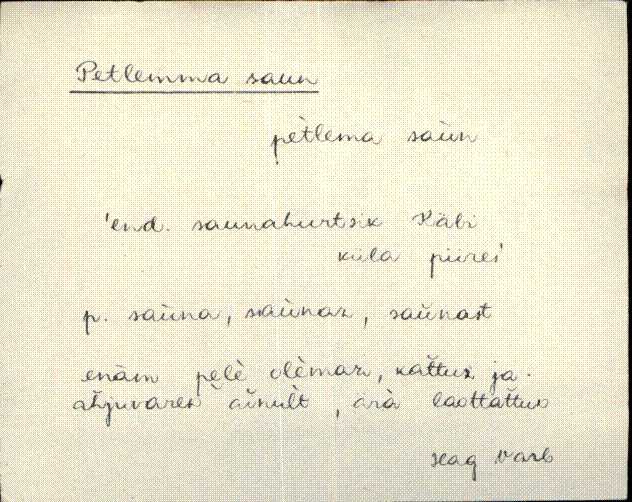 Petlemma saun
pètlema saùn
'end. saunahurtsik Käbi
küla piires'
p. saùna, saùnaz, saùnast
enäm pelè olèmaz, kattuz ja
ahjuvarez ainult, ärà laottattuD
Varb